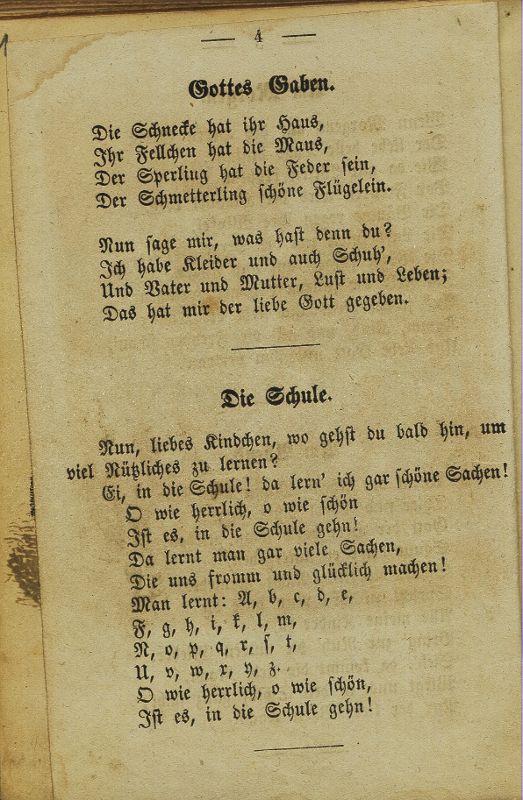 — 4 —
Gottes Gaben.
Die Schnecke hat ihr Haus,
Ihr Fellchen hat die Maus,
Der Sperling hat die Feder sein,
Der Schmetterling schöne Flügelein.
Nun sage mir, was hast denn du?
Ich habe Kleider und auch Schuh',
Und Vater und Mutter, Lust und Leben;
Das hat mir der liebe Gott gegeben.
Die Schule.
Nun, liebes Kindchen, wo gehst du bald hin, um
viel Nützliches zu lernen?
Ei, in die Schule! da lern' ich gar schöne Sachen!
O wie herrlich, o wie schön
Ist es, in die Schule gehn!
Da lernt man gar viele Sachen,
Die uns fromm und glücklich machen!
Man lernt: A, b, c, d, e,
F, g, h, i, k, l, m,
N, o, p, q, r, s, t,
U, v, w, x, y, z.
O wie herrlich, o wie schön,
Ist es, in die Schule gehn!